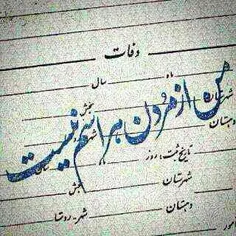 وفات
ماه
سال
شهرستان
بخش
من از مردن هراسم نیست
دهستان
شهر
تاریخ ثبت: روز
شهرستان
بخش
دهستان
شهر - روستا
مأمور